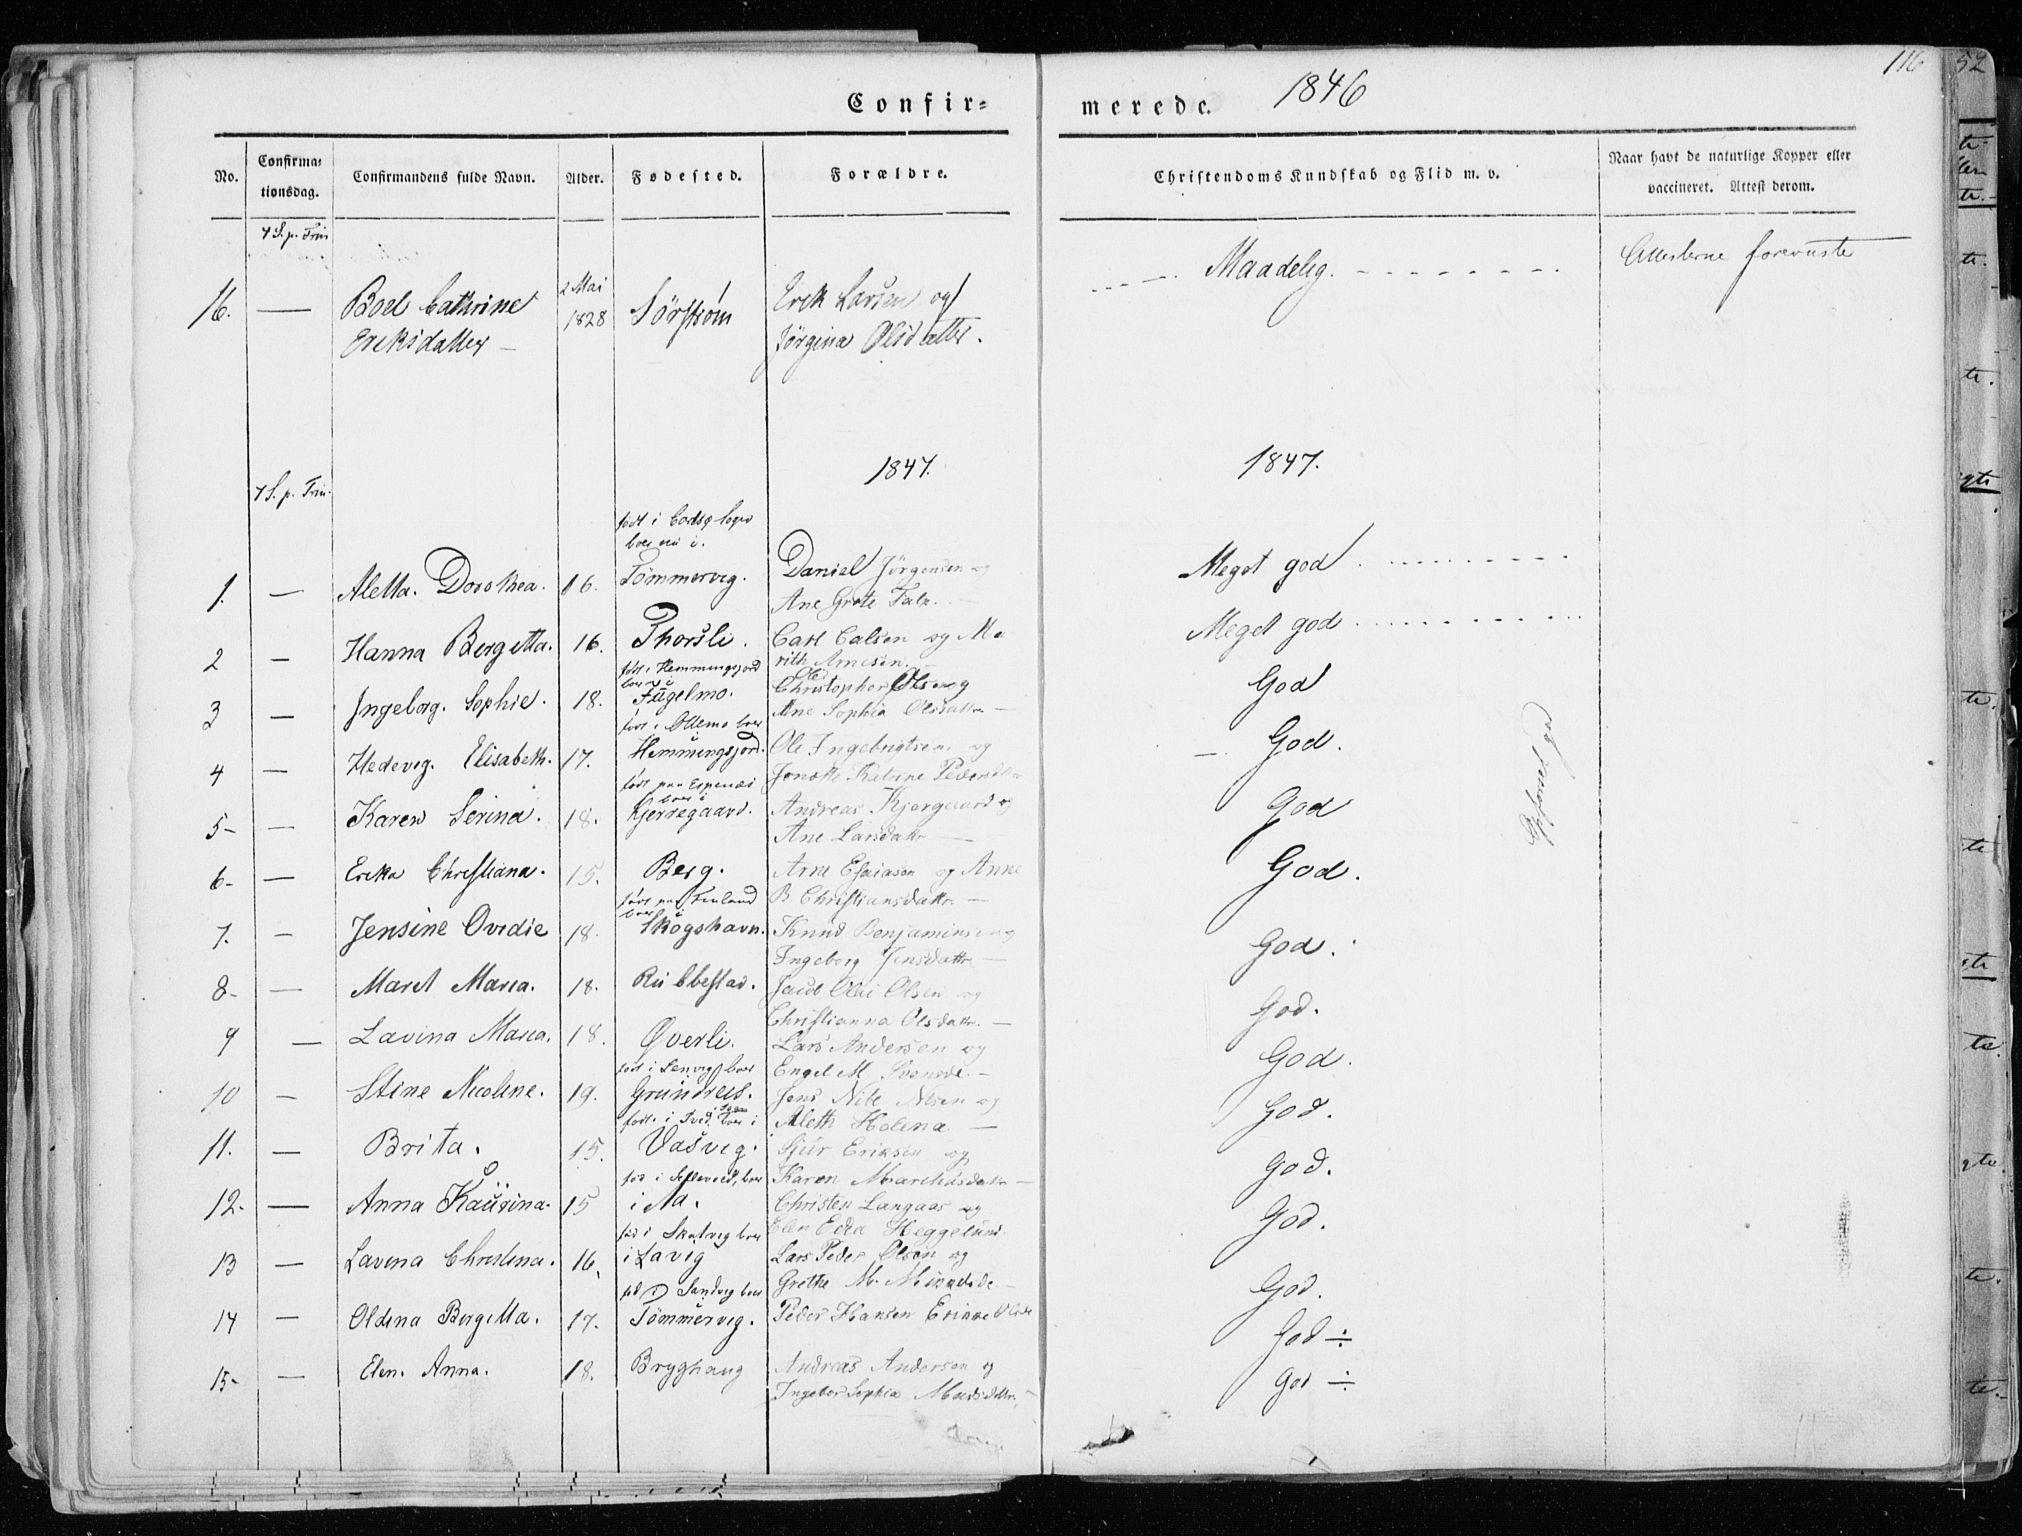 116
52
1846
Confir= merede.
No. Confirma= tionsdag. Confirmandens fulde Navn. Alder. Fødested. Forældre. Christendoms Kundskab og Flid m. v. Naar havt de naturlige Kopper eller vaccineret. Attest derom.
7 S. p. Trin
16. — Boel Cathrine 2 Mai 1828 Sörstrøm Erik Larsen og Maadelig. Attesterne foreviiste
Eriksdatter — Jörgina Olsdatter.
1847. 1847.
7 S. p. Trin.
født i
boer nu i.
1. — Aletta. Dorothea. 16. Tømmervig. Daniel Jørgensen og Meget god
Ane Grete Falz.
2 — Hanna Bergitta. 16. Thorsli. Carl Calsen og Ma Meget god
rith Arnesen.
født i Hemmingsjord
boer i
3 — Ingeborg. Sophie. 18. Fugelmo. Christopher Olsen og God
Ane Sophia Olsdattr —
født i boer
4 — Hedevig. Elisabeth. 17. Hemmingsjord. Ole Ingebrigtsen og God.
Katrine
født paa Espenæs
boer i
5- — Karen Serina. 18. Kjerregaard. Andreas Kjergaard og God
Ane Larsdattr —
Opførsel god
6- — Erika Christiana. 15. Berg. Arne Esaiasen og Anne God.
B Christiansdattr. —
født paa Finland
boer i
7. — Jensine Ovidie 18. Skogshavn. Knud Benjaminsen og God.
Ingeborg Jensdattr. —
8- — Maret Maria. 18. Rubbestad. Jacob Olai Olsen og God.
Christianna Olsdattr. —
9 — Lavina Maria. 18. Øverli. Lars Andersen og God.
Engel M. —
født i boer
10 — Stine Nicoline. 19. Grundreis. Jens og God.
Aleth Helena —
født i boer i
11. — Brita. 15. Vasvig. Sjur Eriksen og God.
Karen —
født i boer
12- — Anna Kaurina. 15 i Aa. Christen Langaas og God.
Elen Edea Heggelund
fød i Skatvig boer
13 — Lavina Christina. 16. i Lavig Lars Peder Olsen og God.
Grethe M.
fød i Sandvig boer
14 — Oldina Bergitta. 17. Tömmervig. Peder Hansen God ÷
15- — Elen. Anna. 18. Brygghaug Andreas Andersen og God ÷
Ingebor Sophia Madsdattr.